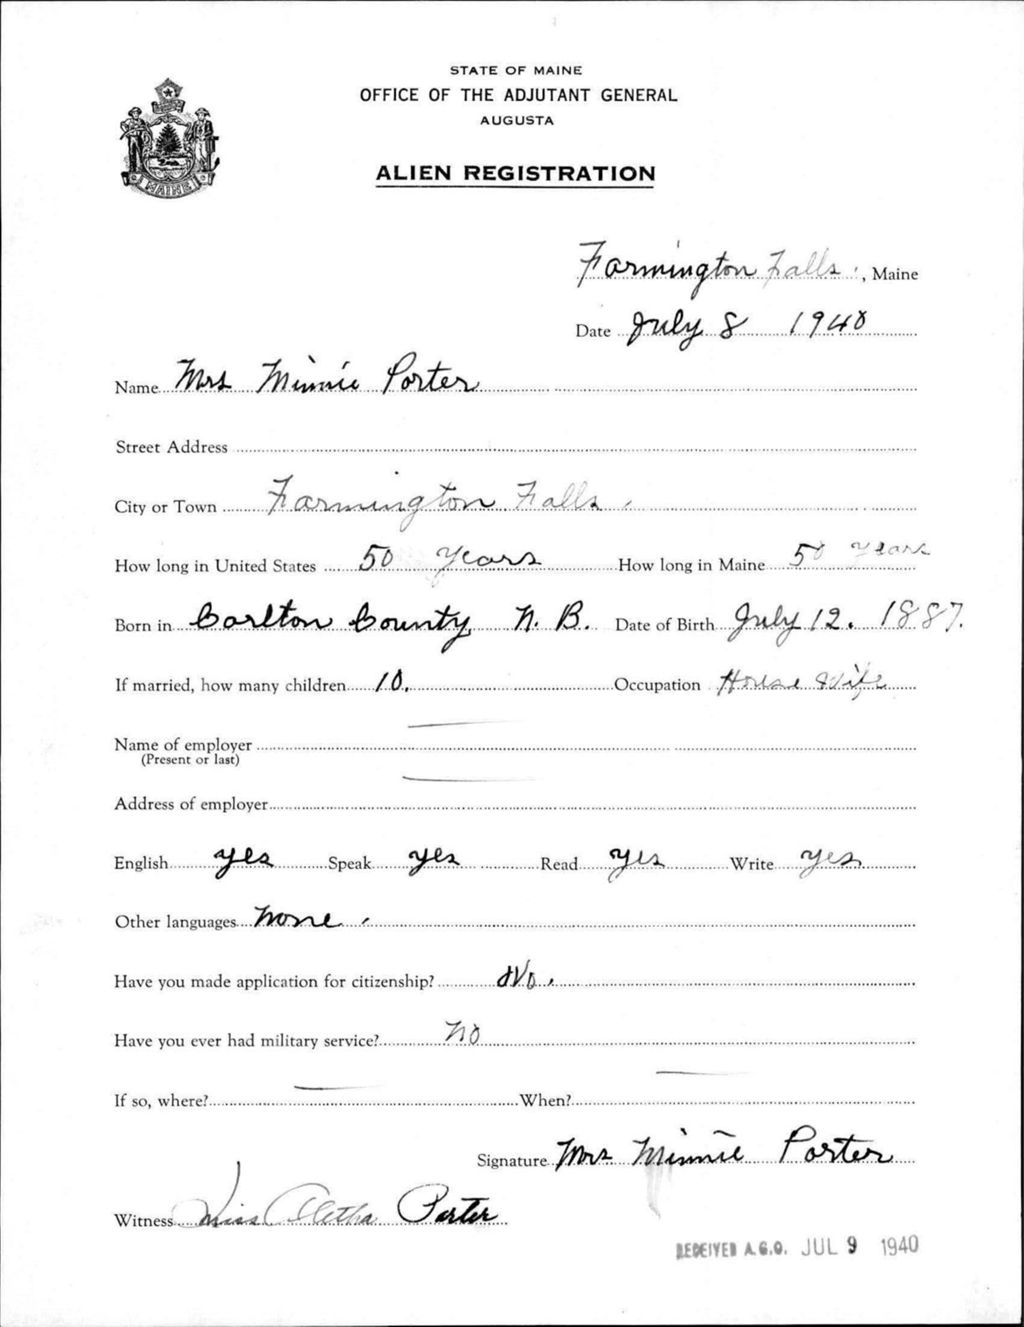 STATE OF MAINE
OFFICE OF THE ADJUTANT GENERAL
AUGUSTA
ALIEN REGISTRATION
MAINE
Farmington Falls, Maine
Date July 8 1940
Name Mrs Minnie Porter
Street Address
City or Town Farmington Falls.
How long in United States 50 years How long in Maine 50 years
Born in Carlton County N. B. Date of Birth July 12. 1887.
If married, how many children 10. Occupation House Wife
Name of employer
(Present or last)
Address of employer
English yes Speak yes Read yes Write yes
Other languages none.
Have you made application for citizenship? No.
Have you ever had military service? no
If so, where? When?
Signature Mrs Minnie Porter
Witness Miss Aletha Porter
RECEIVED A.G.O. JUL 9 1940